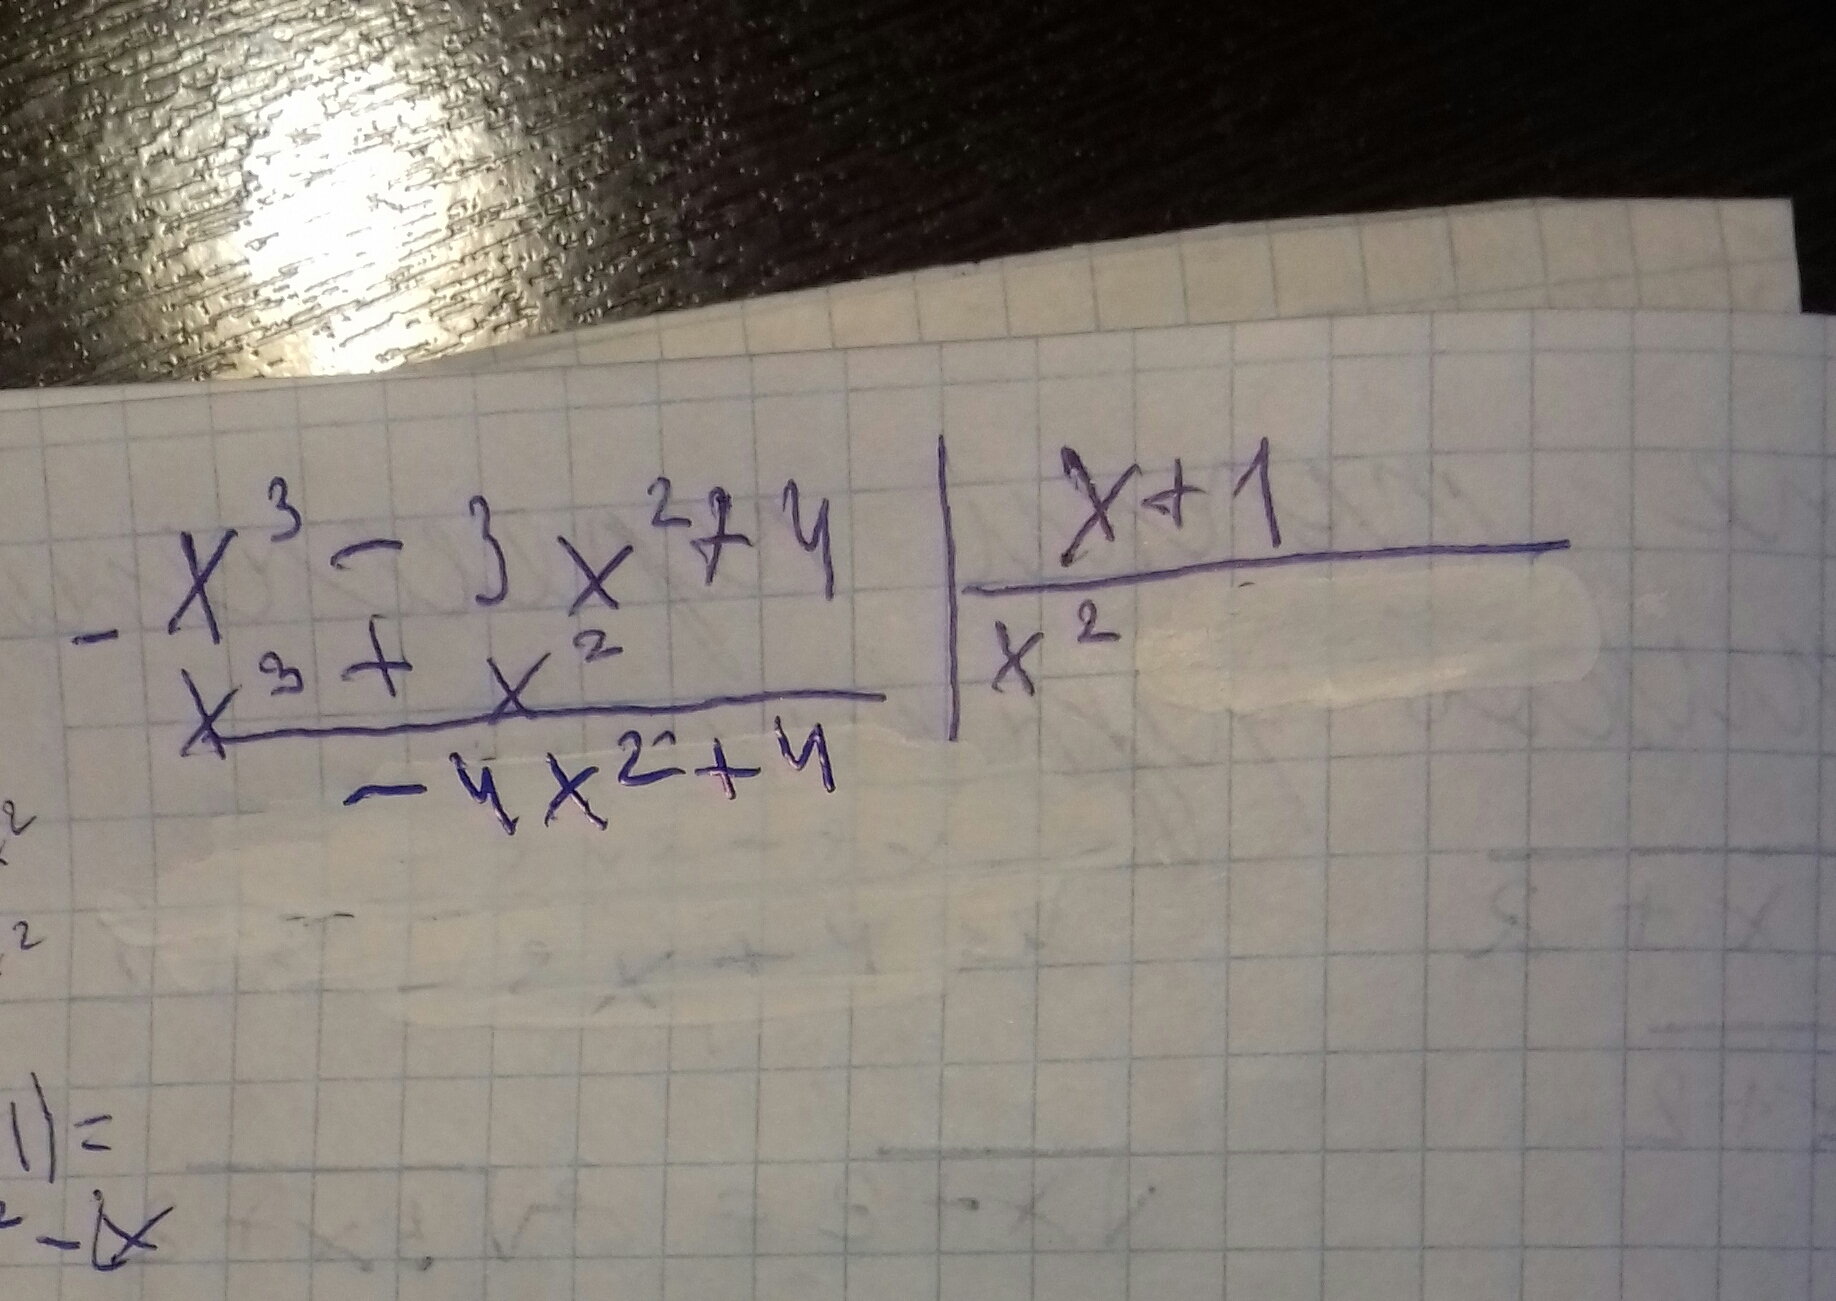 - x³ - 3x² + 4 | x + 1
x³ + x² x²
- 4x² + 4
2
2
1) =
² -